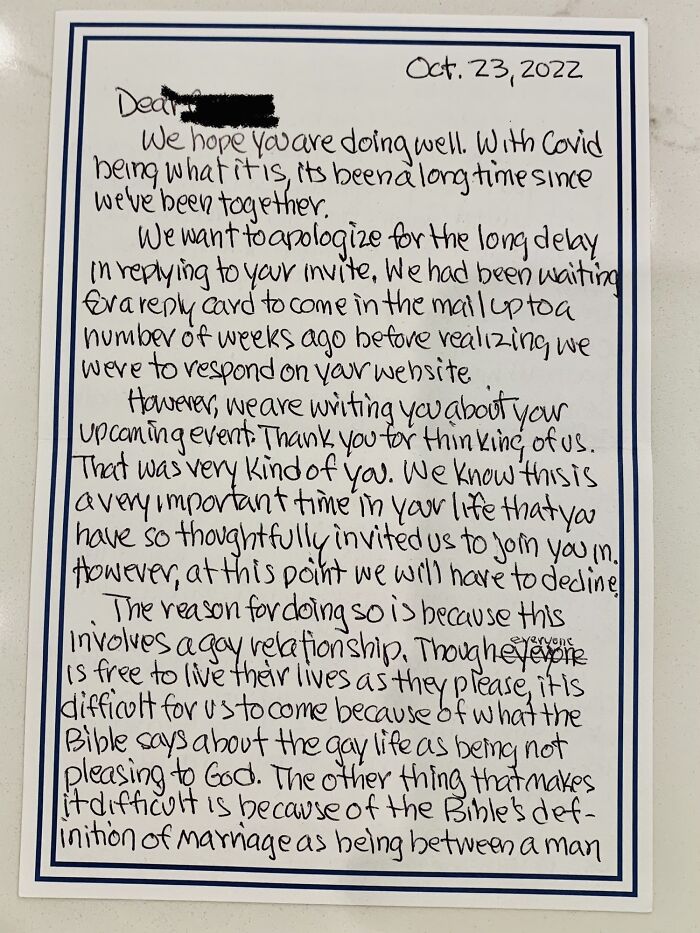 Oct. 23, 2022
Dear
We hope you are doing well. With Covid
being what it is, its been a long time since
we've been together.
We want to apologize for the long delay
in replying to your invite. We had been waiting
for a reply card to come in the mail up to a
number of weeks ago before realizing we
were to respond on your website.
However, we are writing you about your
upcoming event. Thank you for thinking of us.
That was very kind of you. We know this is
a very important time in your life that you
have so thoughtfully invited us to join you in.
However, at this point we will have to decline.
The reason for doing so is because this
involves a gay relationship. Though everyone
is free to live their lives as they please, it is
difficult for us to come because of what the
Bible says about the gay life as being not
pleasing to God. The other thing that makes
it difficult is because of the Bible's def-
inition of marriage as being between a man